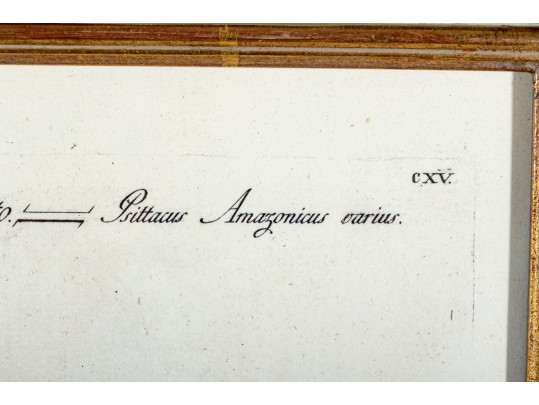 CXV.
Psittacus Amazonicus varius.